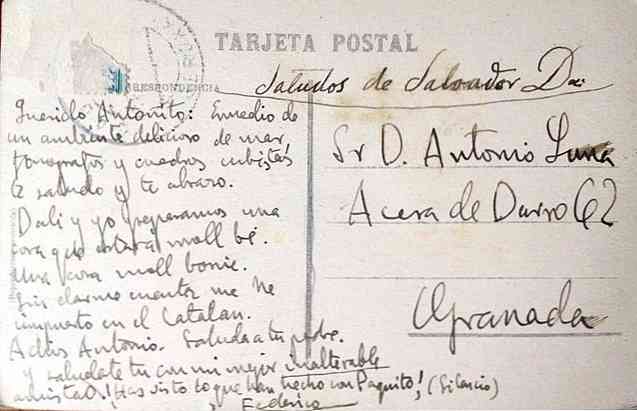 TARJETA POSTAL
RRESPONDENCIA
Saludos de Salvador Dali
Querido Antoñito: Enmedio de
un ambiente delicioso de mar,
fonografos y cuadros cubistas
te saludo y te abrazo.
Dalí y yo preparamos una
cosa que estará moll bé.
Una cosa moll bonic.
Sin darme cuenta me he
impuesto en el Catalan.
Adios Antonio. Saluda a tu padre.
y saludate tu con mi mejor inalterable
amistad. ¡Has visto lo que han hecho con Paquito! (Silencio)
Federico
Sr D. Antonio Luna
Acera de Darro 62
Granada